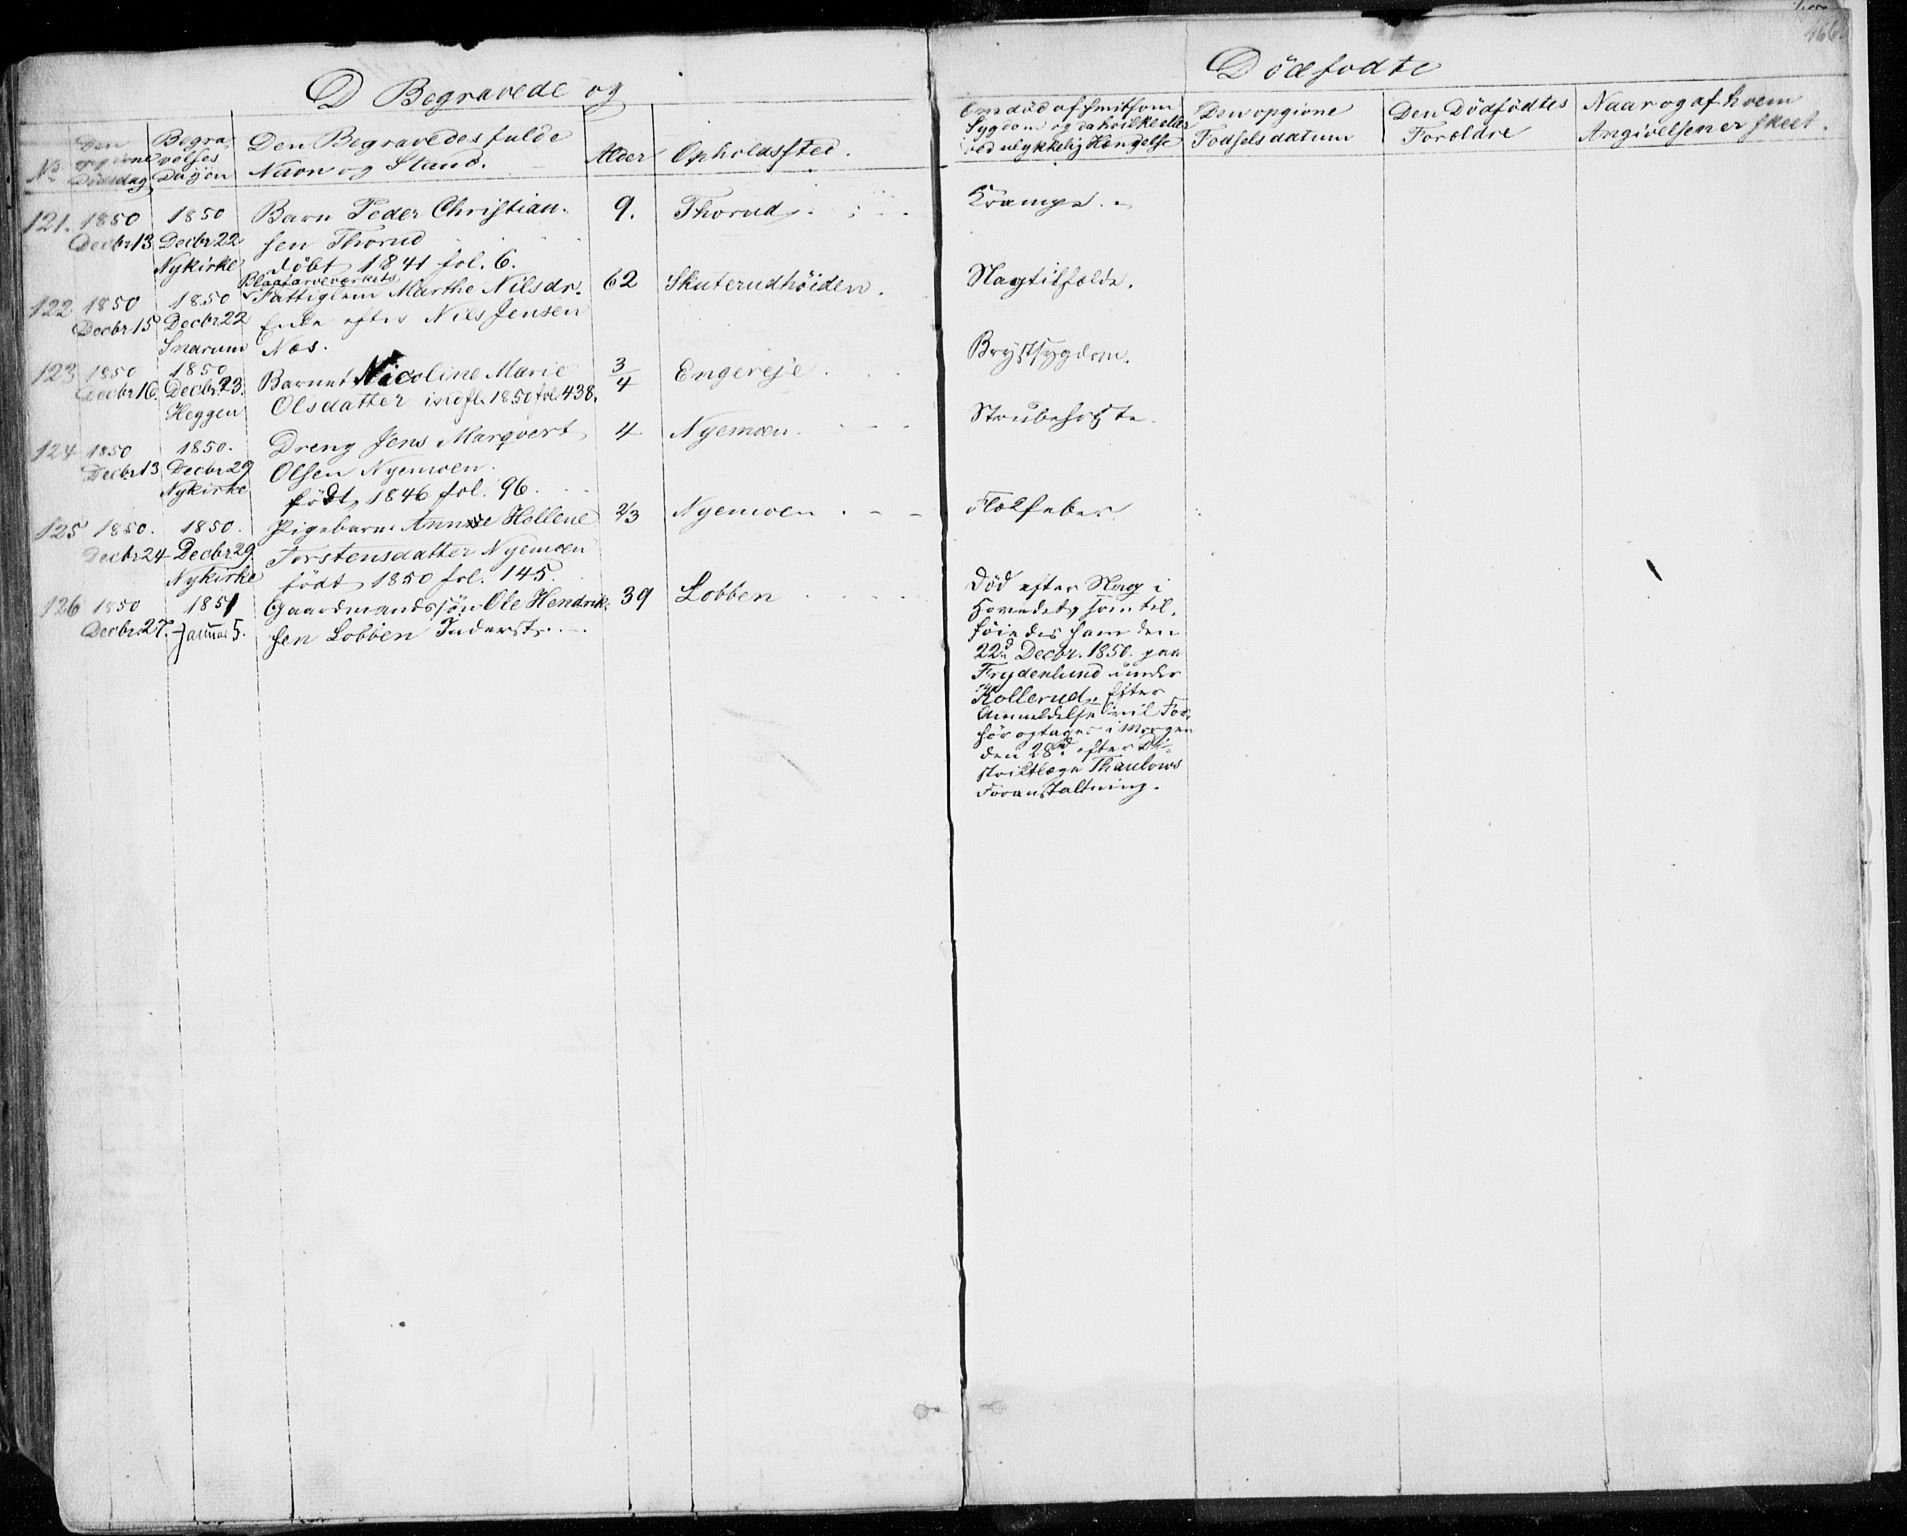 D Begravede og
Dødfødte
No
Den opgivne Dødsdag
Begravelses Dagen
Den Begravedes fulde
Navn og Stand.
Alder
Opholdssted.
Om død af smitsom
Sygdom og da hvilken eller
ved ulykkelig Hændelse
Den opgivne
Fødselsdatum
Den Dødfødtes
Forældre
Naar og af hvem
Angivelsen er skeet.
121. 1850 1850 Barn Peder Christian- 9. Thorud Krampe.
Decbr 13 Decbr 22 sen Thorud
Nykirke døbt 1841 fol. 6.
Blaafarveværkets
122 1850 1850 Fattiglem Marthe Nilsdr. 62 Skuterudhöiden. Slagtilfælde.
Decbr 15 Decbr 22 Enke efter Nils Jensen
Snarum Næs.
123 1850 1850 Barnet Nicoline Marie 3/4 Engereje Brystsygdom.
Decbr 16. Decbr. 23. Olsdatter indfl. 1850 fol. 438.
Heggen
124 1850 1850. Dreng Jens Marqvert 4 Nyemoen. Strubehoste.
Decbr 13 Decbr 29 Olsen Nyemoen.
Nykirke født 1846 fol. 96.
125 1850. 1850. Pigebarn Annne Hellene 2/3 Nyemoen Flækfeber
Decbr 24 Decbr 29 Torstensdatter Nyemoen
Nykirke født 1850 fol. 145.
126 1850 1851 Gaardmandssøn Ole Hendrik- 39 Lobben
Decbr. 27. Januar 5. sen Lobben Inderst.
Død efter Slag i
Hovedet, som til-
føiedes ham den
22d Decbr. 1850. paa
Frydenlund under
Kollerud. Efter
Anmeldelse vil For-
hør optages i Morgen
den 28d. efter Di-
striktlæge Thaulows
Foranstaltning.